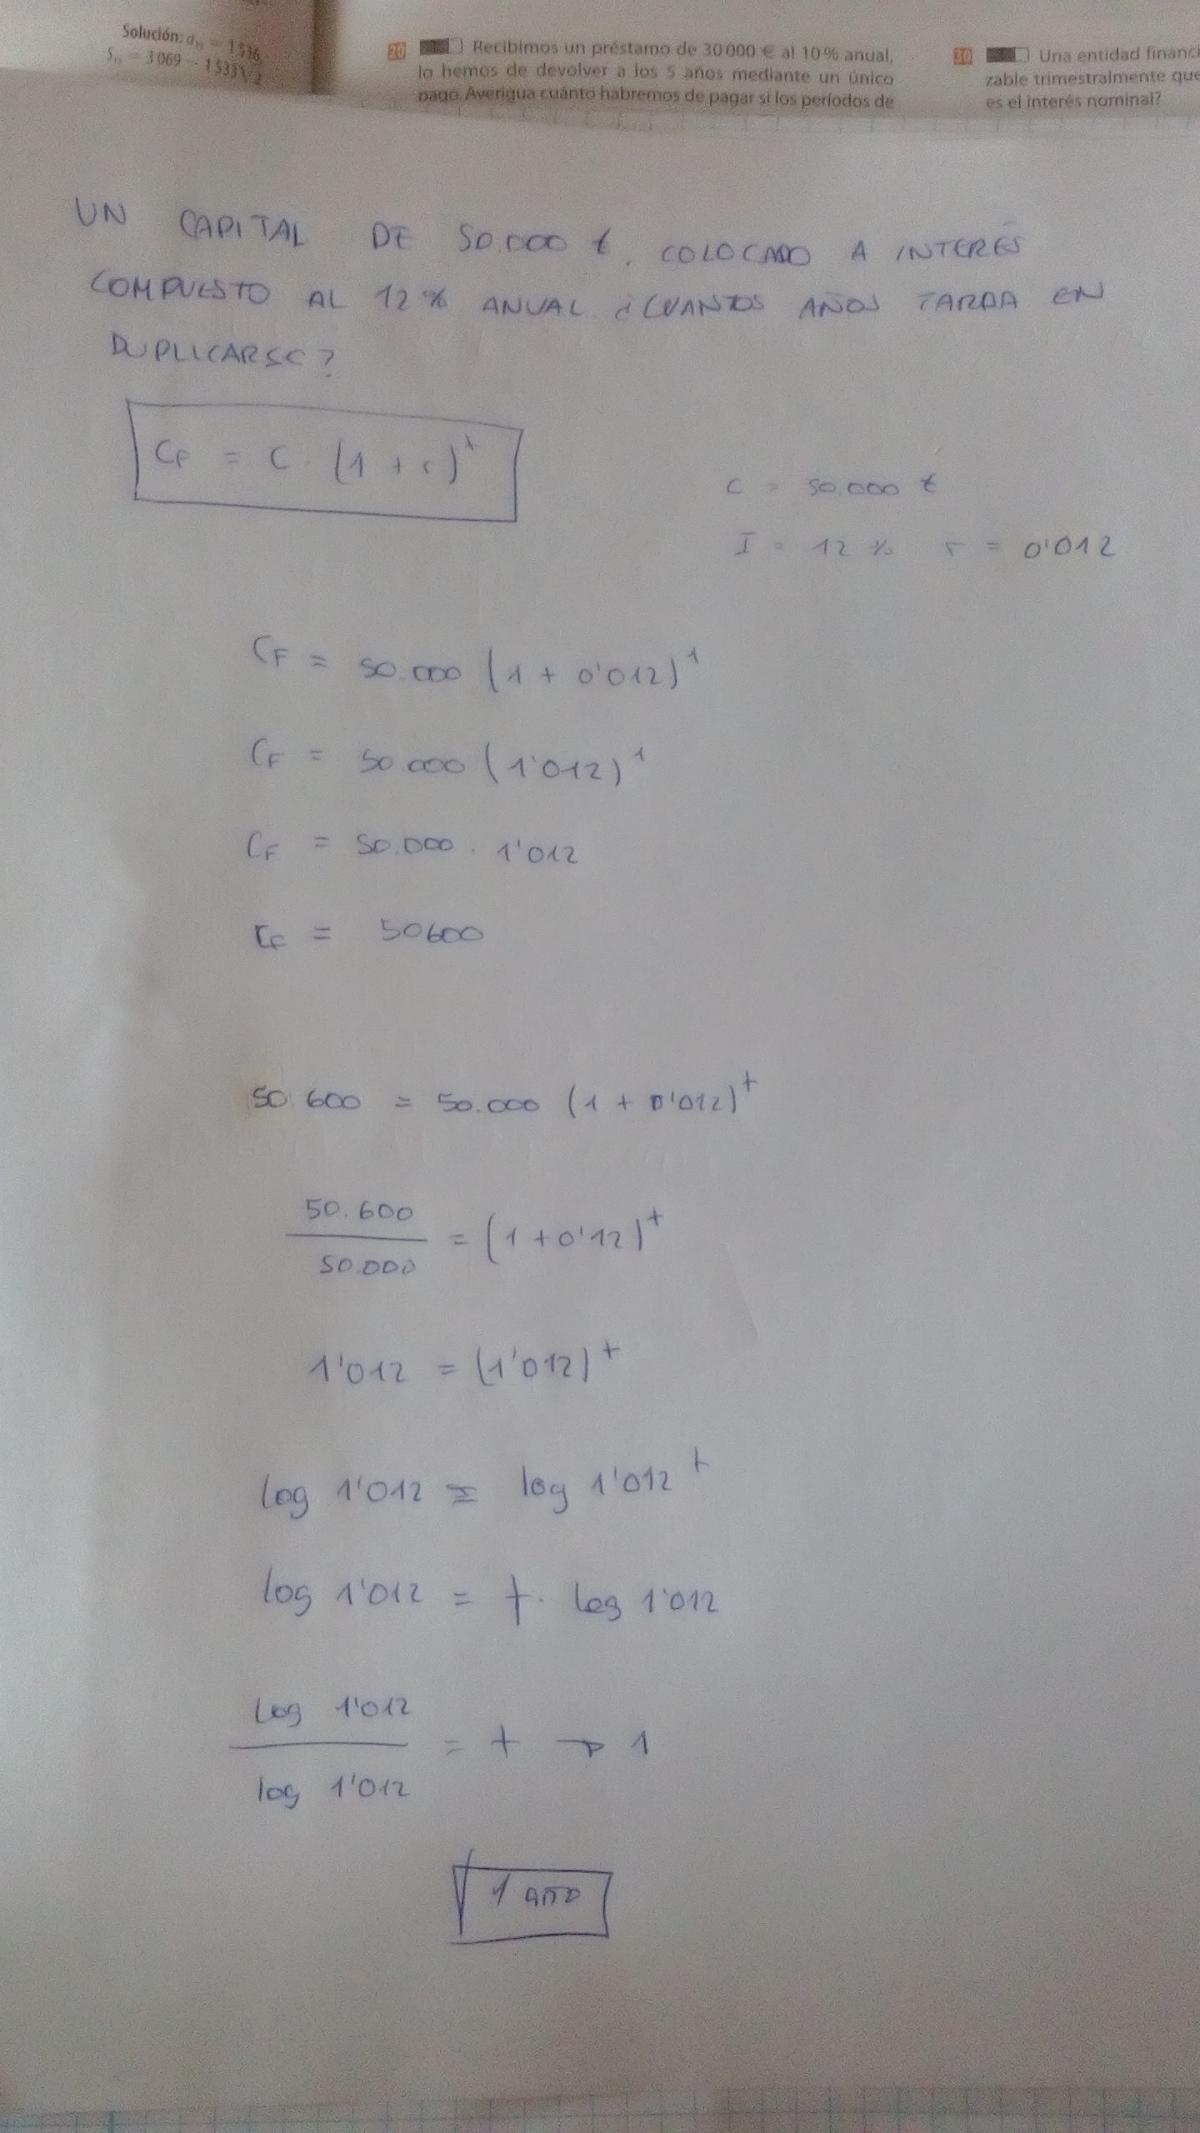 Solución: a₁₁ = 1536,
S₁₁ = 3 069 − 1 533√2
20 Recibimos un préstamo de 30 000 € al 10 % anual,
lo hemos de devolver a los 5 años mediante un único
pago. Averigua cuánto habremos de pagar si los períodos de
30 Una entidad financi
zable trimestralmente que
es el interés nominal?
UN CAPITAL DE 50.000 €, COLOCADO A INTERÉS
COMPUESTO AL 12 % ANUAL ¿CUANTOS AÑOS TARDA EN
DUPLICARSE?
CF = C · (1 + r)^t
C = 50.000 €
I = 12 % r = 0'012
CF = 50.000 (1 + 0'012)^1
CF = 50.000 (1'012)^1
CF = 50.000 · 1'012
CF = 50600
50.600 = 50.000 (1 + 0'012)^t
50.600 / 50.000 = (1 + 0'12)^t
1'012 = (1'012)^t
log 1'012 = log 1'012^t
log 1'012 = t · log 1'012
log 1'012 / log 1'012 = t → 1
1 AÑO